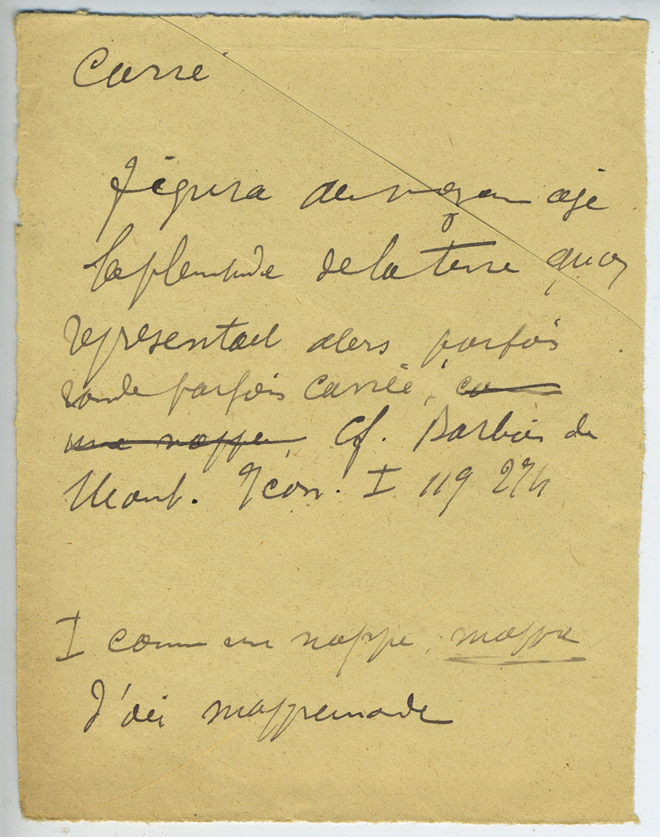 Carré
figura au moyen age
la plenitude de la terre qu'on
representait alors parfois
ronde parfois carrée, comme
une nappe Cf. Barbier de
Mont. Icon. I 119 274
I comme une nappe, mappa
D'où mappemonde